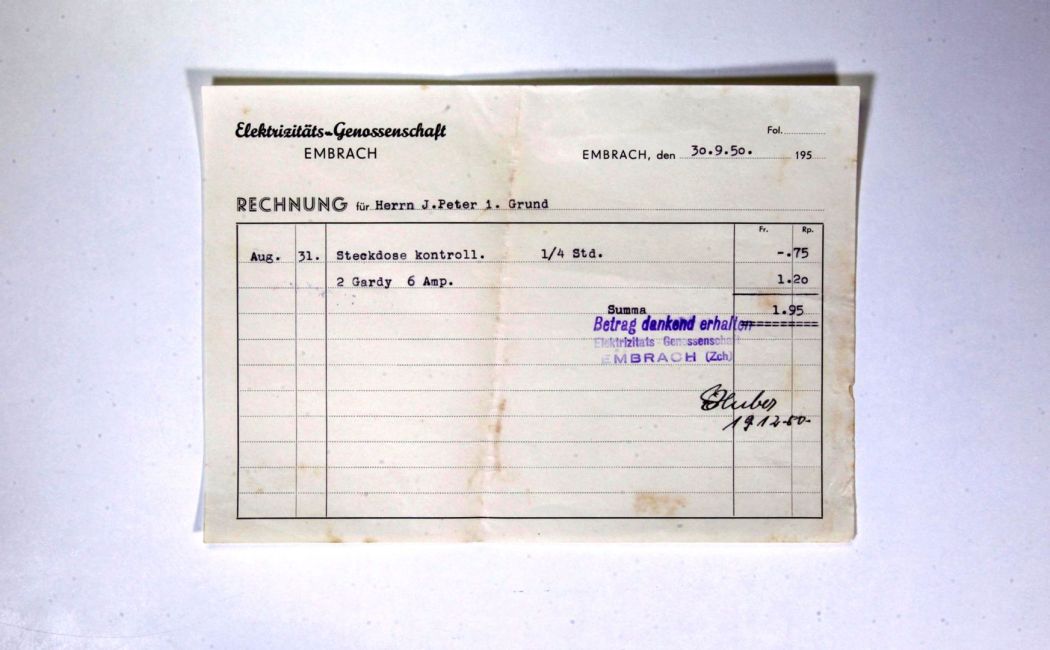 Elektrizitäts-Genossenschaft
EMBRACH
Fol.
EMBRACH, den 30.9.50. 195
RECHNUNG für Herrn J.Peter i. Grund
Fr. Rp.
Aug. 31. Steckdose kontroll. 1/4 Std. -.75
2 Gardy 6 Amp. 1.20
Summa 1.95
Betrag dankend erhalten
Elektrizitats Genossenschaft
EMBRACH (Zch)
Huber
19.12.50-